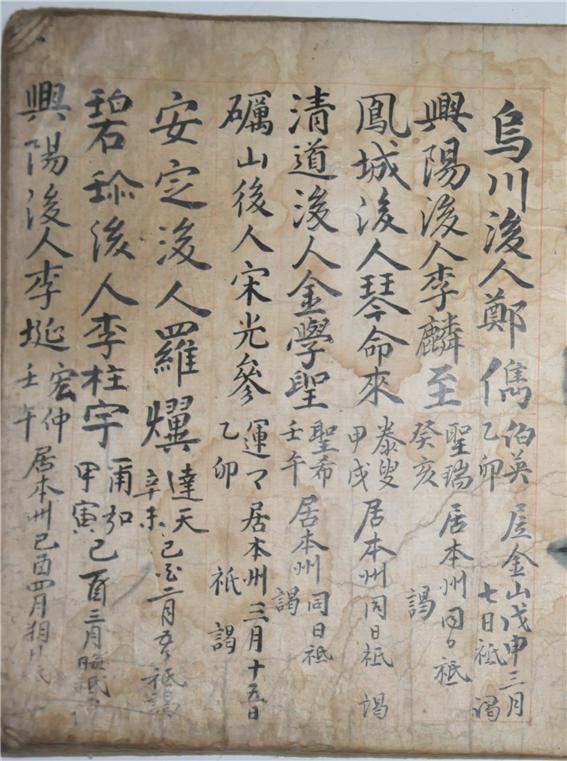 烏川後人鄭儁 伯英 乙卯 居金山戊申三月七日祗謁
興陽後人李麟至 聖瑞 癸亥 居本州同日祗謁
鳳城後人琴命來 泰叟 甲戌 居本州同日祗謁
清道後人金學聖 聖希 壬午 居本州同日祗謁
礪山後人宋光參 運 乙卯 居本州三月十五日祗謁
安定後人羅爗 達天 辛未 己酉二月 祗謁
碧珍後人李柱宇 甫 甲寅 己酉三月 祗
興陽後人李埏 宏仲 壬午 居本州己酉四月